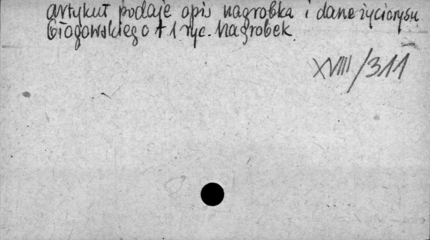 artykuł podaje opis nagrobka i dane życiorysu
Głogowskiego + 1 ryc. Nagrobek.
XVIII/311